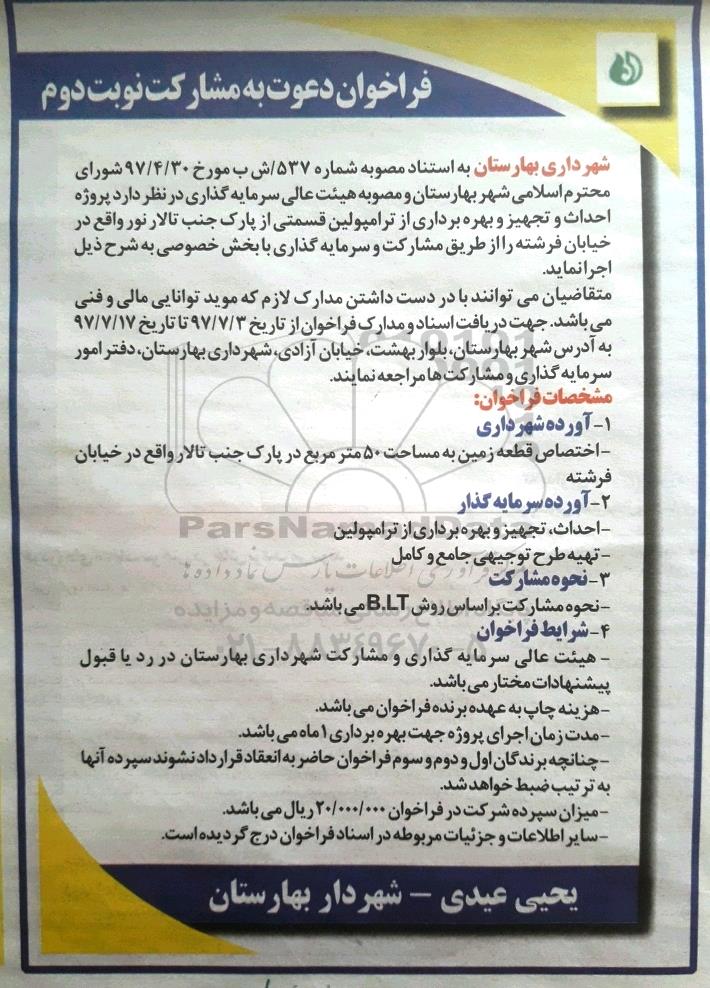 فراخوان دعوت به مشارکت نوبت دوم
شهرداری بهارستان به استناد مصوبه شماره ۵۳۷/ش ب مورخ ۹۷/۴/۳۰ شورای
محترم اسلامی شهر بهارستان و مصوبه هیئت عالی سرمایه گذاری در نظر دارد پروژه
احداث و تجهیز و بهره برداری از ترامپولین قسمتی از پارک جنب تالار نور واقع در
خیابان فرشته را از طریق مشارکت و سرمایه گذاری با بخش خصوصی به شرح ذیل
اجرا نماید.
متقاضیان می توانند با در دست داشتن مدارک لازم که موید توانایی مالی و فنی
می باشد. جهت دریافت اسناد و مدارک فراخوان از تاریخ ۹۷/۷/۳ تا تاریخ ۹۷/۷/۱۷
به آدرس شهر بهارستان، بلوار بهشت، خیابان آزادی، شهرداری بهارستان، دفتر امور
سرمایه گذاری و مشارکت ها مراجعه نمایند.
مشخصات فراخوان:
۱- آورده شهرداری
- اختصاص قطعه زمین به مساحت ۵۰ متر مربع در پارک جنب تالار واقع در خیابان
فرشته
۲- آورده سرمایه گذار
- احداث، تجهیز و بهره برداری از ترامپولین
- تهیه طرح توجیهی جامع و کامل
۳- نحوه مشارکت
- نحوه مشارکت بر اساس روش B.L.T می باشد.
۴- شرایط فراخوان
- هیئت عالی سرمایه گذاری و مشارکت شهرداری بهارستان در رد یا قبول
پیشنهادات مختار می باشد.
- هزینه چاپ به عهده برنده فراخوان می باشد.
- مدت زمان اجرای پروژه جهت بهره برداری ۱ ماه می باشد.
- چنانچه برندگان اول و دوم و سوم فراخوان حاضر به انعقاد قرارداد نشوند سپرده آنها
به ترتیب ضبط خواهد شد.
- میزان سپرده شرکت در فراخوان ۲۰/۰۰۰/۰۰۰ ریال می باشد.
- سایر اطلاعات و جزئیات مربوطه در اسناد فراخوان درج گردیده است.
یحیی عیدی - شهردار بهارستان